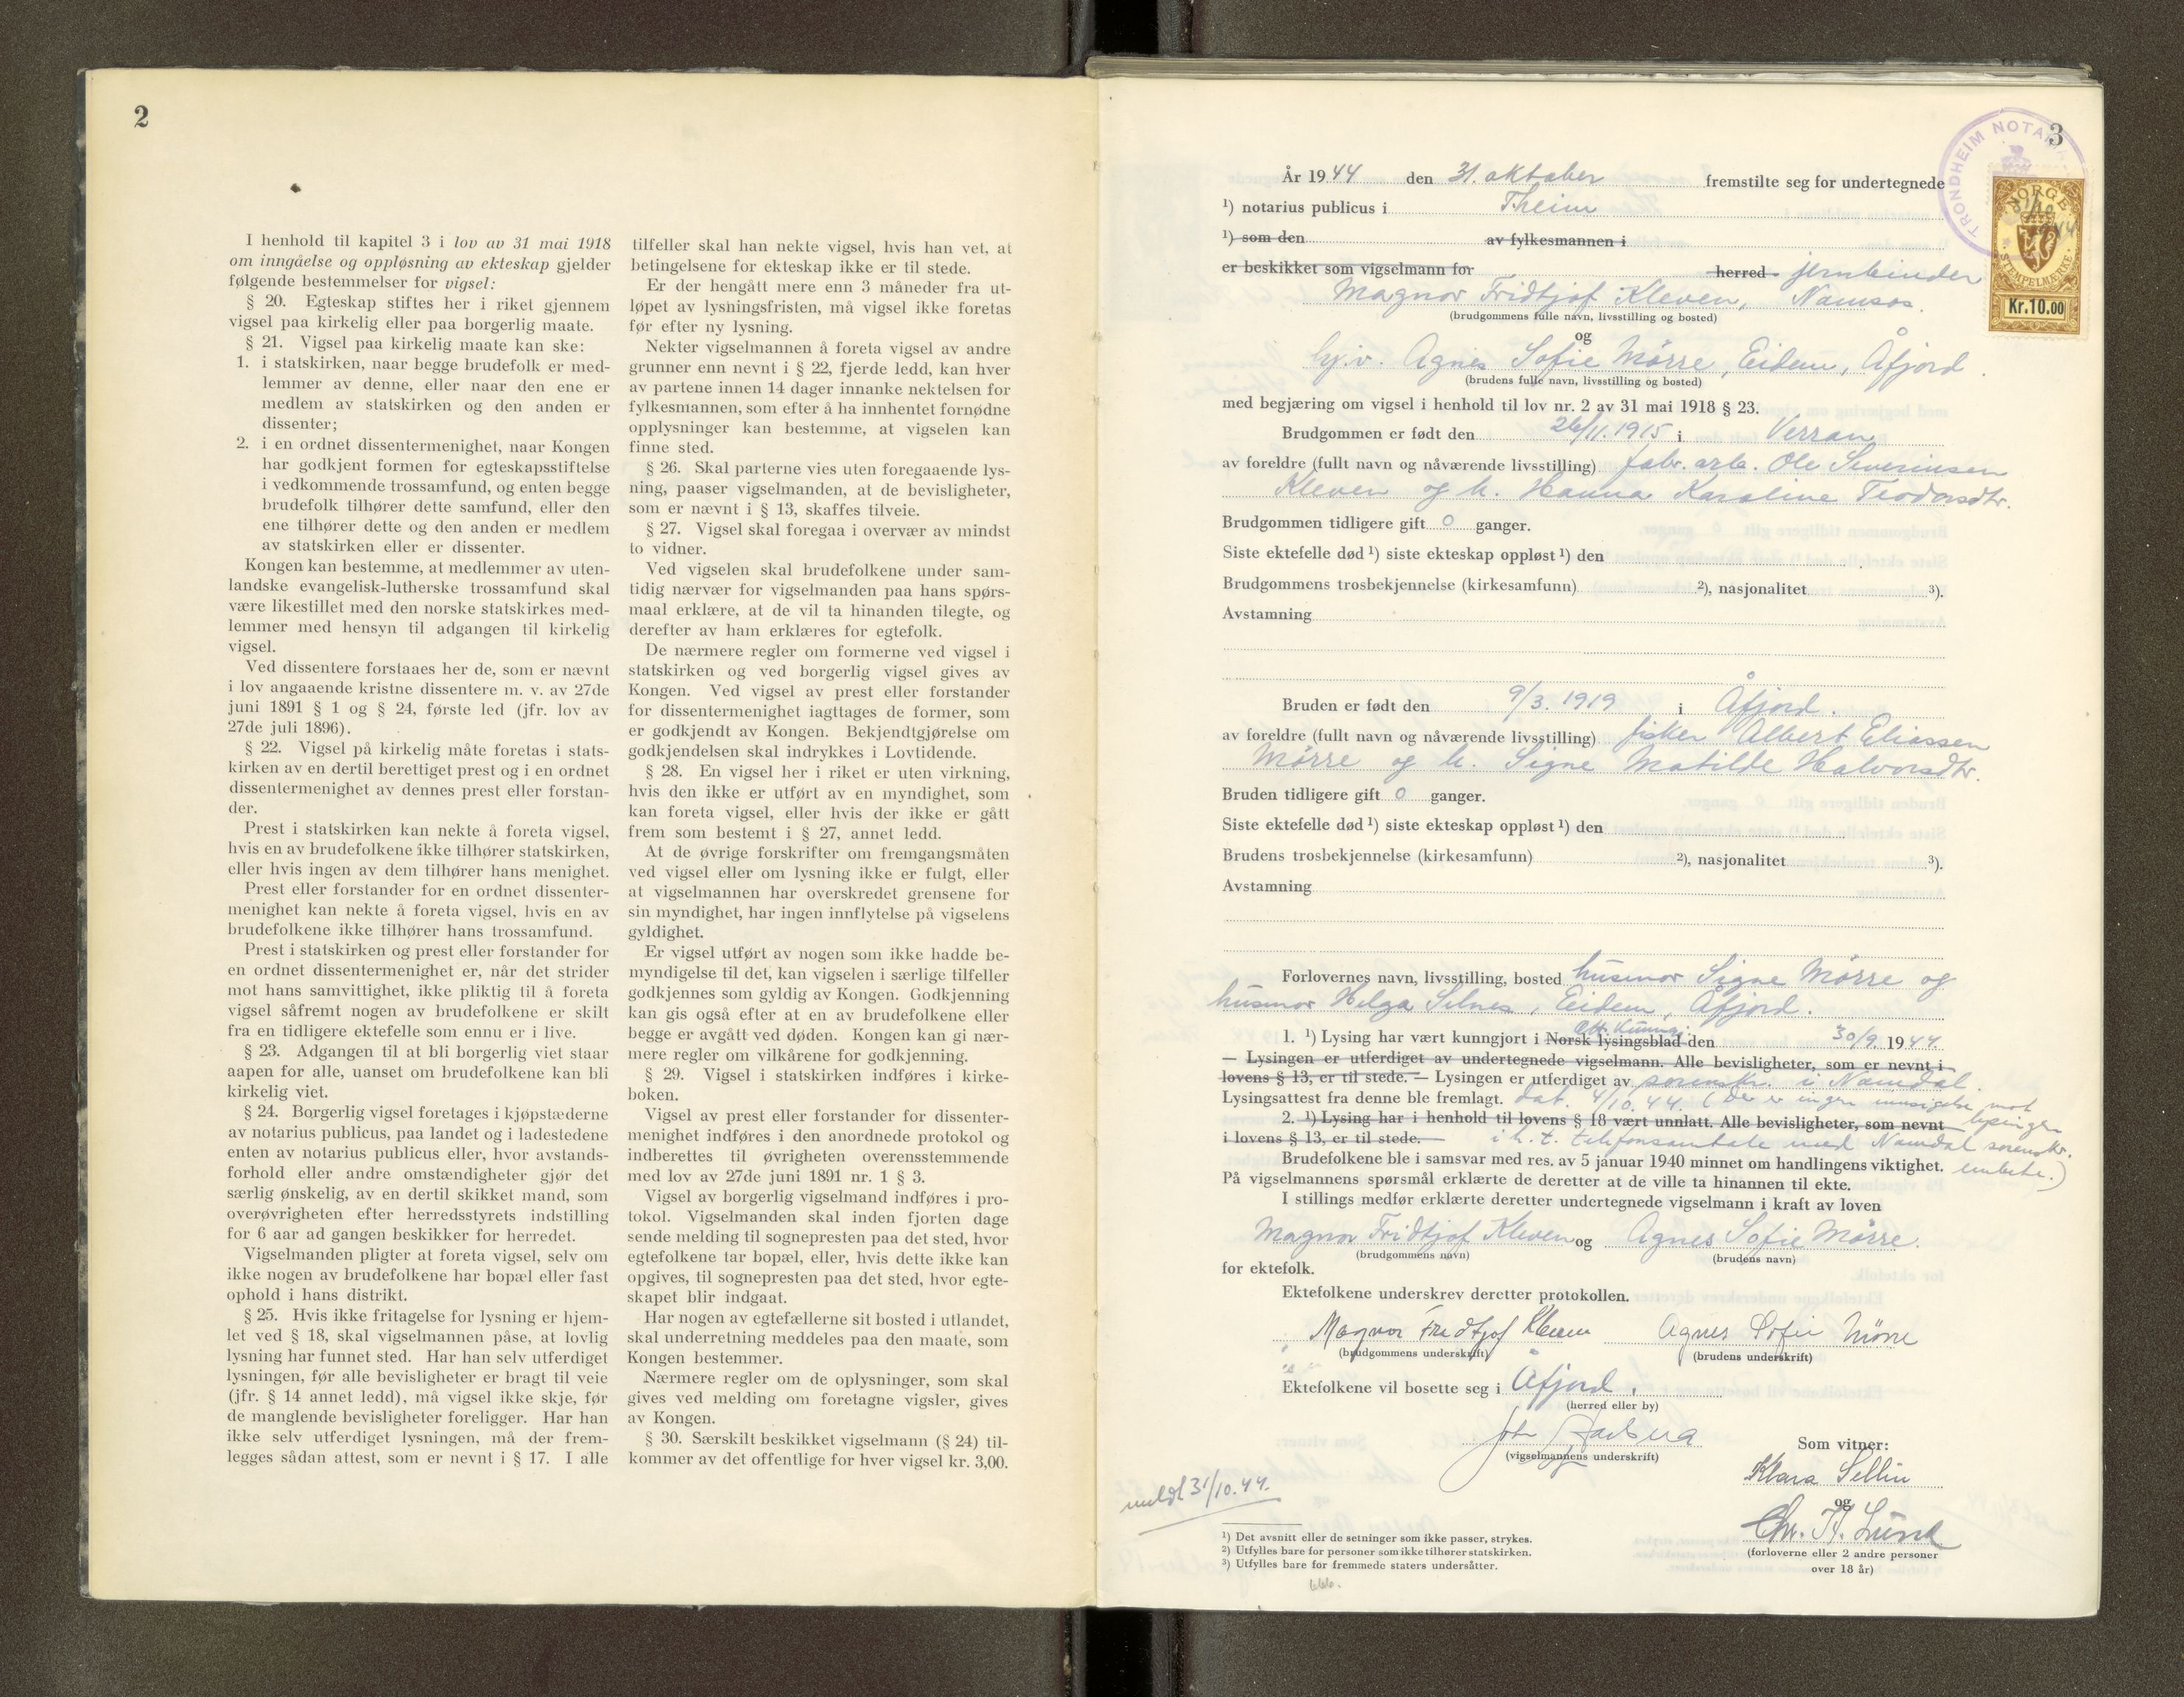 2
I henhold til kapitel 3 i lov av 31 mai 1918
om inngåelse og oppløsning av ekteskap gjelder
følgende bestemmelser for vigsel:
§ 20. Egteskap stiftes her i riket gjennem
vigsel paa kirkelig eller paa borgerlig maate.
§ 21. Vigsel paa kirkelig maate kan ske:
1. i statskirken, naar begge brudefolk er med-
lemmer av denne, eller naar den ene er
medlem av statskirken og den anden er
dissenter;
2. i en ordnet dissentermenighet, naar Kongen
har godkjent formen for egteskapsstiftelse
i vedkommende trossamfund, og enten begge
brudefolk tilhører dette samfund, eller den
ene tilhører dette og den anden er medlem
av statskirken eller er dissenter.
Kongen kan bestemme, at medlemmer av uten-
landske evangelisk-lutherske trossamfund skal
være likestillet med den norske statskirkes med-
lemmer med hensyn til adgangen til kirkelig
vigsel.
Ved dissentere forstaaes her de, som er nævnt
i lov angaaende kristne dissentere m. v. av 27de
juni 1891 § 1 og § 24, første led (jfr. lov av
27de juli 1896).
§ 22. Vigsel på kirkelig måte foretas i stats-
kirken av en dertil berettiget prest og i en ordnet
dissentermenighet av dennes prest eller forstan-
der.
Prest i statskirken kan nekte å foreta vigsel,
hvis en av brudefolkene ikke tilhører statskirken,
eller hvis ingen av dem tilhører hans menighet.
Prest eller forstander for en ordnet dissenter-
menighet kan nekte å foreta vigsel, hvis en av
brudefolkene ikke tilhører hans trossamfund.
Prest i statskirken og prest eller forstander for
en ordnet dissentermenighet er, når det strider
mot hans samvittighet, ikke pliktig til å foreta
vigsel såfremt nogen av brudefolkene er skilt
fra en tidligere ektefelle som ennu er i live.
§ 23. Adgangen til at bli borgerlig viet staar
aapen for alle, uanset om brudefolkene kan bli
kirkelig viet.
§ 24. Borgerlig vigsel foretages i kjøpstæderne
av notarius publicus, paa landet og i ladestedene
enten av notarius publicus eller, hvor avstands-
forhold eller andre omstændigheter gjør det
særlig ønskelig, av en dertil skikket mand, som
overøvrigheten efter herredsstyrets indstilling
for 6 aar ad gangen beskikker for herredet.
Vigselmanden pligter at foreta vigsel, selv om
ikke nogen av brudefolkene har bopæl eller fast
ophold i hans distrikt.
§ 25. Hvis ikke fritagelse for lysning er hjem-
let ved § 18, skal vigselmannen påse, at lovlig
lysning har funnet sted. Har han selv utferdiget
lysningen, før alle bevisligheter er bragt til veie
(jfr. § 14 annet ledd), må vigsel ikke skje, før
de manglende bevisligheter foreligger. Har han
ikke selv utferdiget lysningen, må der frem-
legges sådan attest, som er nevnt i § 17. I alle
tilfeller skal han nekte vigsel, hvis han vet, at
betingelsene for ekteskap ikke er til stede.
Er der hengått mere enn 3 måneder fra ut-
løpet av lysningsfristen, må vigsel ikke foretas
før efter ny lysning.
Nekter vigselmannen å foreta vigsel av andre
grunner enn nevnt i § 22, fjerde ledd, kan hver
av partene innen 14 dager innanke nektelsen for
fylkesmannen, som efter å ha innhentet fornødne
opplysninger kan bestemme, at vigselen kan
finne sted.
§ 26. Skal parterne vies uten foregaaende lys-
ning, paaser vigselmanden, at de bevisligheter,
som er nævnt i § 13, skaffes tilveie.
§ 27. Vigsel skal foregaa i overvær av mindst
to vidner.
Ved vigselen skal brudefolkene under sam-
tidig nærvær for vigselmanden paa hans spørs-
maal erklære, at de vil ta hinanden tilegte, og
derefter av ham erklæres for egtefolk.
De nærmere regler om formerne ved vigsel i
statskirken og ved borgerlig vigsel gives av
Kongen. Ved vigsel av prest eller forstander
for dissentermenighet iagttages de former, som
er godkjendt av Kongen. Bekjendtgjørelse om
godkjendelsen skal indrykkes i Lovtidende.
§ 28. En vigsel her i riket er uten virkning,
hvis den ikke er utført av en myndighet, som
kan foreta vigsel, eller hvis der ikke er gått
frem som bestemt i § 27, annet ledd.
At de øvrige forskrifter om fremgangsmåten
ved vigsel eller om lysning ikke er fulgt, eller
at vigselmannen har overskredet grensene for
sin myndighet, har ingen innflytelse på vigselens
gyldighet.
Er vigsel utført av nogen som ikke hadde be-
myndigelse til det, kan vigselen i særlige tilfeller
godkjennes som gyldig av Kongen. Godkjenning
kan gis også efter at en av brudefolkene eller
begge er avgått ved døden. Kongen kan gi nær-
mere regler om vilkårene for godkjenning.
§ 29. Vigsel i statskirken indføres i kirke-
boken.
Vigsel av prest eller forstander for dissenter-
menighet indføres i den anordnede protokol og
indberettes til øvrigheten overensstemmende
med lov av 27de juni 1891 nr. 1 § 3.
Vigsel av borgerlig vigselmand indføres i pro-
tokol. Vigselmanden skal inden fjorten dage
sende melding til sognepresten paa det sted, hvor
egtefolkene tar bopæl, eller, hvis dette ikke kan
opgives, til sognepresten paa det sted, hvor egte-
skapet blir indgaat.
Har nogen av egtefællerne sit bosted i utlandet,
skal underretning meddeles paa den maate, som
Kongen bestemmer.
Nærmere regler om de oplysninger, som skal
gives ved melding om foretagne vigsler, gives
av Kongen.
§ 30. Særskilt beskikket vigselmann (§ 24) til-
kommer av det offentlige for hver vigsel kr. 3,00.
3
TRONDHEIM NOTA
NORGE
STEMPELMÆRKE
Kr.10.00
År 1944 den 31. oktober fremstilte seg for undertegnede
1) notarius publicus i Theim
1) som den av fylkesmannen i
er beskikket som vigselmann for herred jernbinder
Magnor Fridtjof Kleven, Namsos.
(brudgommens fulle navn, livsstilling og bosted)
og
hj.v. Agnes Sofie Mörre, Eidem, Åfjord.
(brudens fulle navn, livsstilling og bosted)
med begjæring om vigsel i henhold til lov nr. 2 av 31 mai 1918 § 23.
Brudgommen er født den 26/11.1915 i Verran
av foreldre (fullt navn og nåværende livsstilling) fabr. arb. Ole Severinsen
Kleven og h. Hanna Karoline Teodorsdtr.
Brudgommen tidligere gift 0 ganger.
Siste ektefelle død 1) siste ekteskap oppløst 1) den
Brudgommens trosbekjennelse (kirkesamfunn) 2), nasjonalitet 3).
Avstamning
Bruden er født den 9/3. 1919 i Åfjord.
av foreldre (fullt navn og nåværende livsstilling) fisker Albert Eliassen
Mörre og h. Signe Matilde Halvorsdtr.
Bruden tidligere gift 0 ganger.
Siste ektefelle død 1) siste ekteskap oppløst 1) den
Brudens trosbekjennelse (kirkesamfunn) 2), nasjonalitet 3).
Avstamning
Forlovernes navn, livsstilling, bosted husmor Signe Mörre og
husmor Helga Selnes, Eidem, Åfjord.
1. 1) Lysing har vært kunngjort i Norsk lysingsblad den 30/9. 1944.
— Lysingen er utferdiget av undertegnede vigselmann. Alle bevisligheter, som er nevnt i
lovens § 13, er til stede. — Lysingen er utferdiget av sorenskr. i Namdal.
Lysingsattest fra denne ble fremlagt. dat. 4/10. 44. (Der er ingen innsigelse mot
lysingen
2. 1) Lysing har i henhold til lovens § 18 vært unnlatt. Alle bevisligheter, som nevnt
i lovens § 13, er til stede. — i h. t. telefonsamtale med Namdal sorenskr.
Brudefolkene ble i samsvar med res. av 5 januar 1940 minnet om handlingens viktighet. embete.)
På vigselmannens spørsmål erklærte de deretter at de ville ta hinannen til ekte.
I stillings medfør erklærte deretter undertegnede vigselmann i kraft av loven
Magnor Fridtjof Kleven og Agnes Sofie Mörre.
(brudgommens navn) (brudens navn)
for ektefolk.
Ektefolkene underskrev deretter protokollen.
Magnor Fridtjof Kleven Agnes Sofie Mörre
(brudgommens underskrift) (brudens underskrift)
Ektefolkene vil bosette seg i Åfjord.
(herred eller by)
(vigselmannens underskrift)
Som vitner:
Klara Sellin
og
Chr. Fr. Lund
(forloverne eller 2 andre personer
over 18 år)
meldt 31/10.44.
1) Det avsnitt eller de setninger som ikke passer, strykes.
2) Utfylles bare for personer som ikke tilhører statskirken.
3) Utfylles bare for fremmede staters undersåtter.